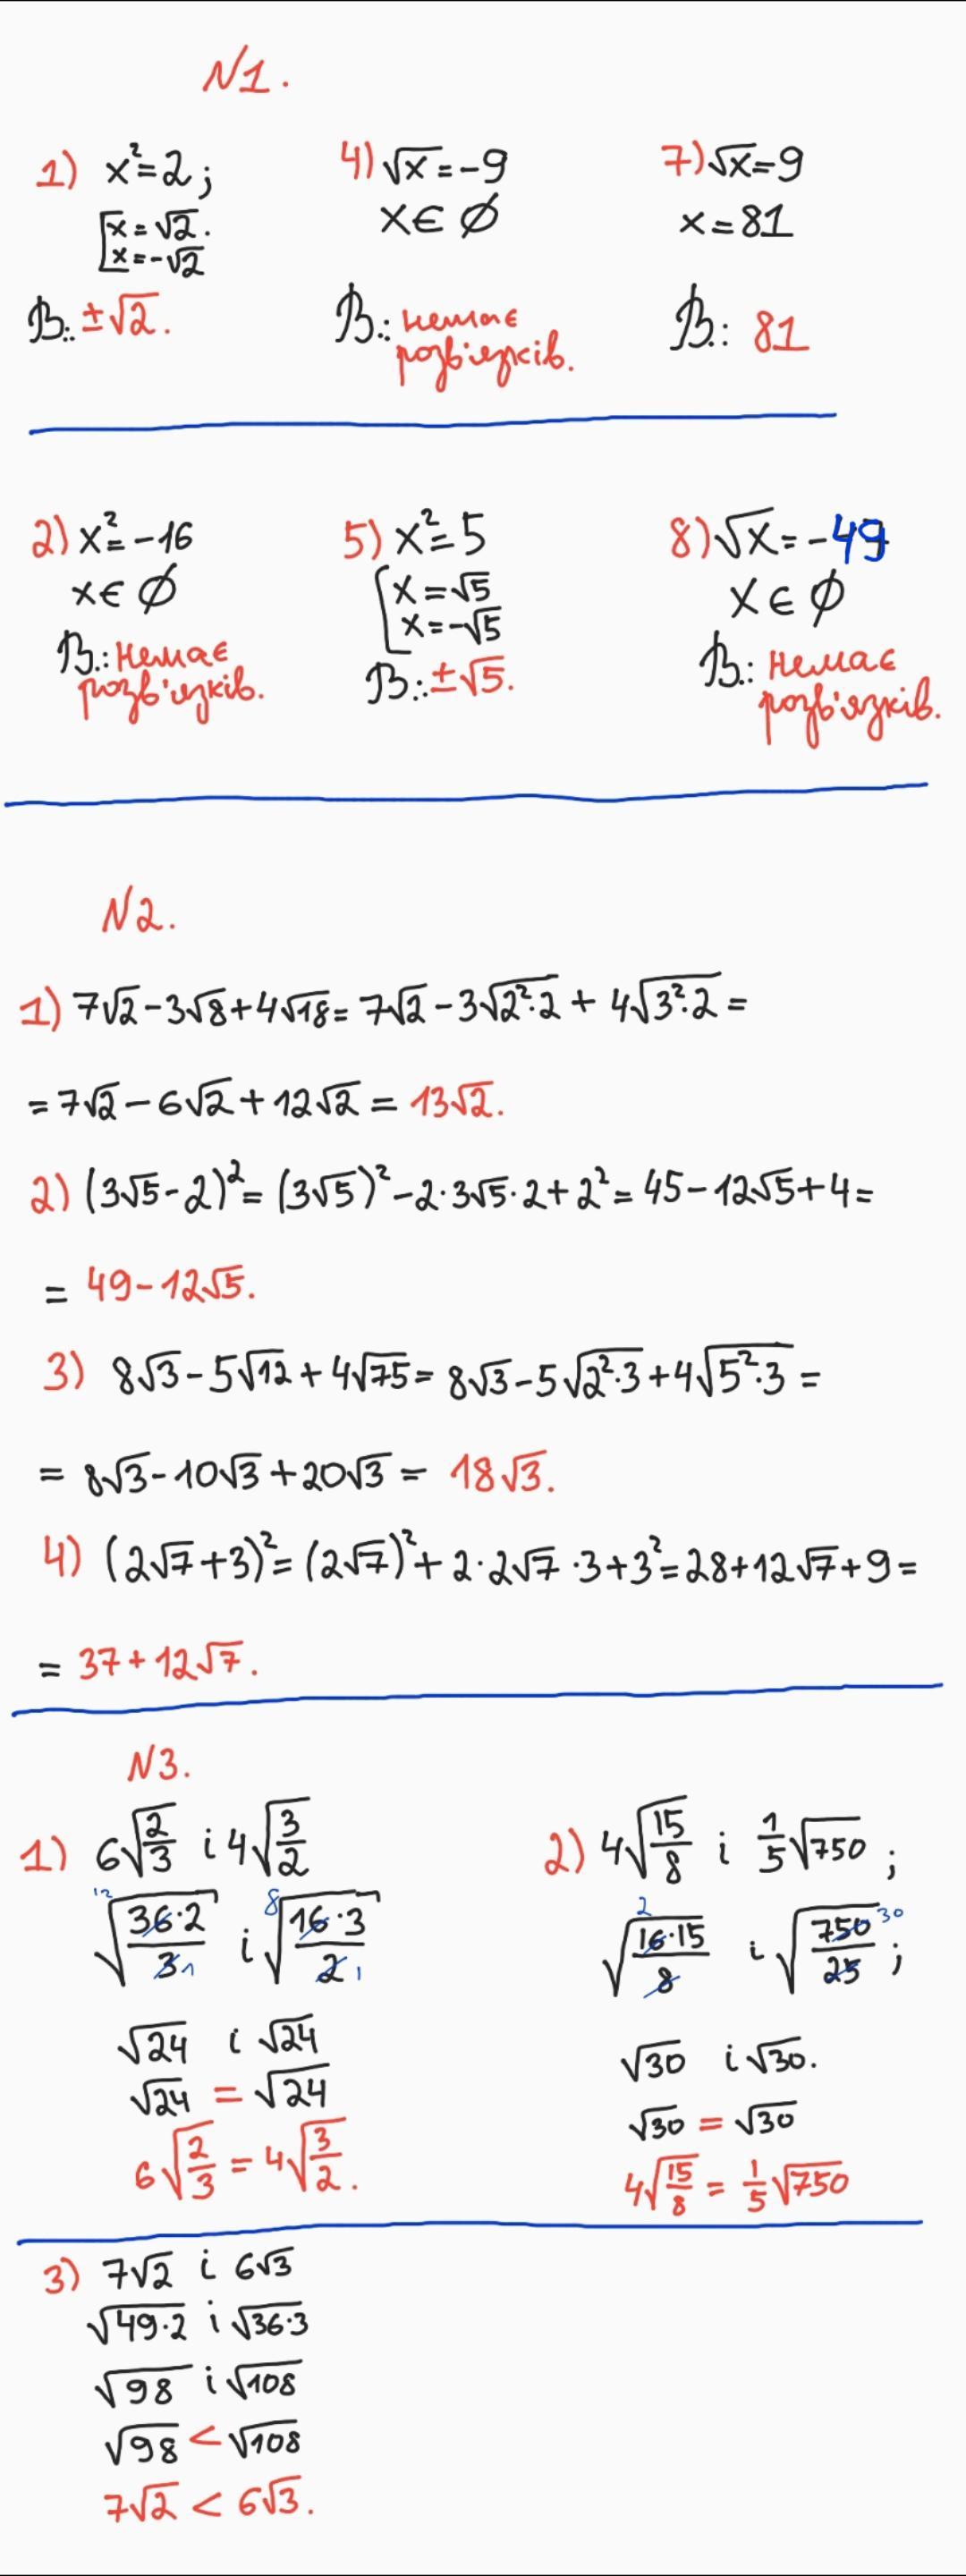 N1.
1) x²=2;
[x=√2.
[x=-√2
В.: ±√2.
4) √x=-9
x∈∅
В.: немає
розв'язків.
7) √x=9
x=81
В.: 81
2) x²=-16
x∈∅
В.: немає
розв'язків.
5) x²=5
[x=√5
[x=-√5
В.: ±√5.
8) √x=-49
x∈∅
В.: немає
розв'язків.
N2.
1) 7√2-3√8+4√18=7√2-3√(2²·2)+4√(3²·2)=
=7√2-6√2+12√2=13√2.
2) (3√5-2)²=(3√5)²-2·3√5·2+2²=45-12√5+4=
=49-12√5.
3) 8√3-5√12+4√75=8√3-5√(2²·3)+4√(5²·3)=
=8√3-10√3+20√3=18√3.
4) (2√7+3)²=(2√7)²+2·2√7·3+3²=28+12√7+9=
=37+12√7.
N3.
1) 6√(2/3) і 4√(3/2)
12 √(36·2/3) 1 і 8 √(16·3/2) 1
√24 і √24
√24 = √24
6√(2/3) = 4√(3/2).
2) 4√(15/8) і 1/5√750;
2 √(16·15/8) і √(750/25) 30;
√30 і √30.
√30 = √30
4√(15/8) = 1/5√750
3) 7√2 і 6√3
√(49·2) і √(36·3)
√98 і √108
√98 < √108
7√2 < 6√3.